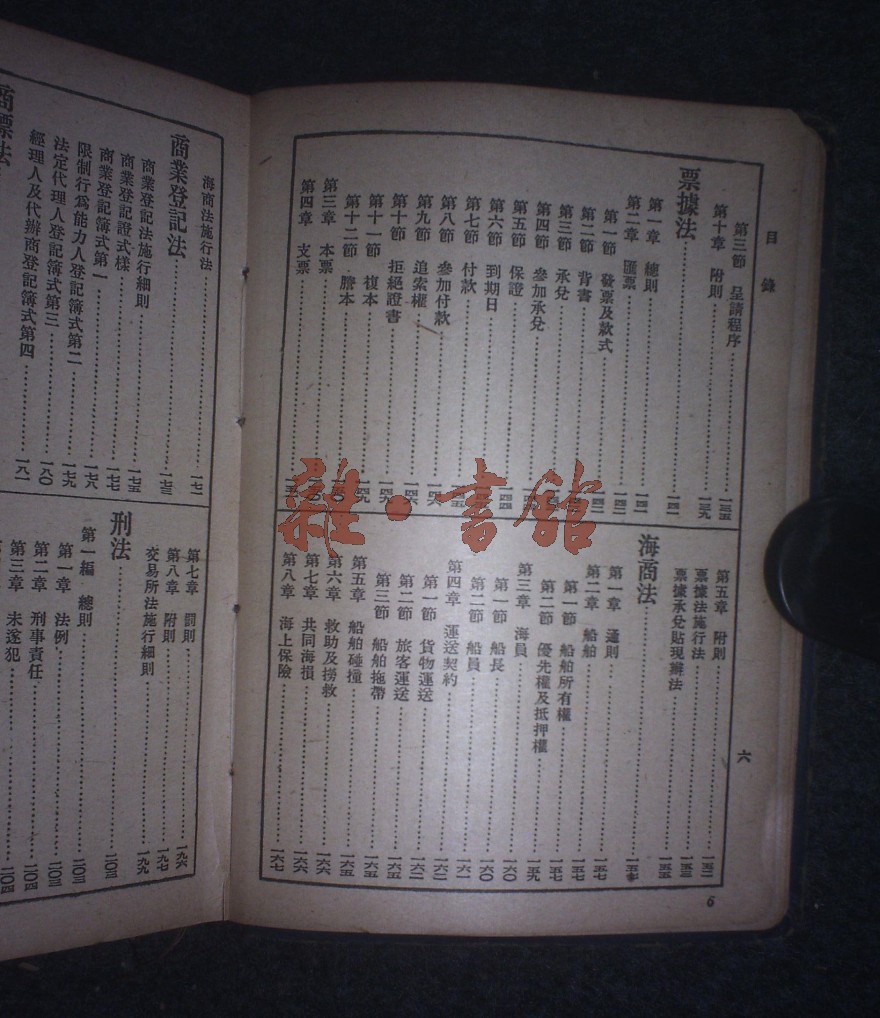 目錄
六
第三節 呈請程序……一三五
第十章 附則……一三九
票據法……一四一
第一章 總則……一四一
第二章 匯票……一四二
第一節 發票及款式
第二節 背書
第三節 承兌
第四節 參加承兌
第五節 保證
第六節 到期日
第七節 付款
第八節 參加付款
第九節 追索權……一四六
第十節 拒絕證書
第十一節 複本
第十二節 謄本
第三章 本票
第四章 支票
第五章 附則……一五二
票據法施行法……一五三
票據承兌貼現辦法……一五五
海商法
第一章 通則……一五七
第二章 船舶……一五七
第一節 船舶所有權……一五七
第二節 優先權及抵押權……一五九
第三章 海員……一六〇
第一節 船長……一六〇
第二節 船員……一六一
第四章 運送契約……一六二
第一節 貨物運送……一六二
第二節 旅客運送……一六五
第三節 船舶拖帶……一六五
第五章 船舶碰撞……一六五
第六章 救助及撈救……一六六
第七章 共同海損……一六六
第八章 海上保險……一六七
6
海商法施行法……一七一
商業登記法……一七三
商業登記法施行細則……一七五
商業登記證式樣……一七七
商業登記簿式第一……一七八
限制行爲能力人登記簿式第二……一七九
法定代理人登記簿式第三……一八〇
經理人及代辦商登記簿式第四……一八一
商標法
第七章 罰則……一九六
第八章 附則……一九七
交易所法施行細則……一九九
刑法……二〇三
第一編 總則……二〇三
第一章 法例……二〇三
第二章 刑事責任……二〇四
第三章 未遂犯……二〇四
雜·書館